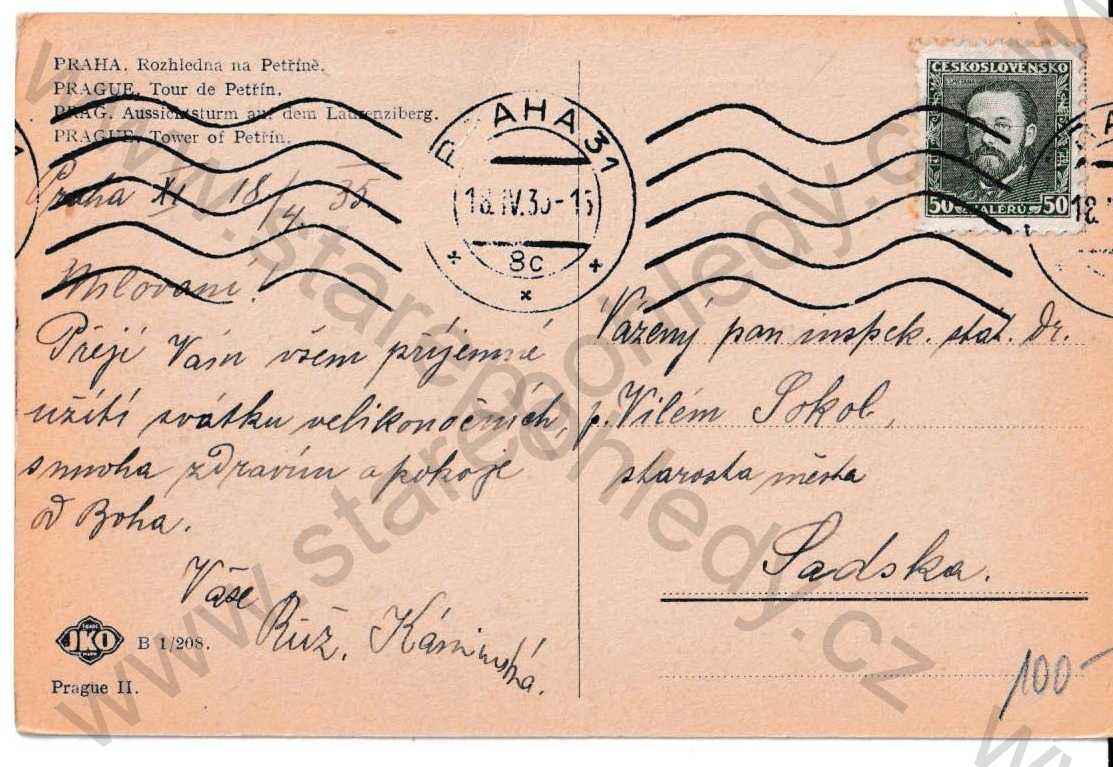 PRAHA. Rozhledna na Petříně.
PRAGUE. Tour de Petřín.
PRAG. Aussichtsturm auf dem Laurenziberg.
PRAGUE. Tower of Petřín.
Praha XI 18/4. 35.
Milovaní!
Přeji Vám všem příjemné
užítí svátku velikonočních,
s mnoha zdravím a pokoje
od Boha.
Vaše
Růž. Káninská.
JKO
B 1/208.
Prague II.
PRAHA 31
18.IV.35-15
8c
ČESKOSLOVENSKO
50 HALÉŘŮ 50
18.
Vážený pan inspek. stat. Dr.
p. Vilém Sokol,
starosta města
Sadska.
100-
www.starepohledy.cz
www.starepohledy.cz